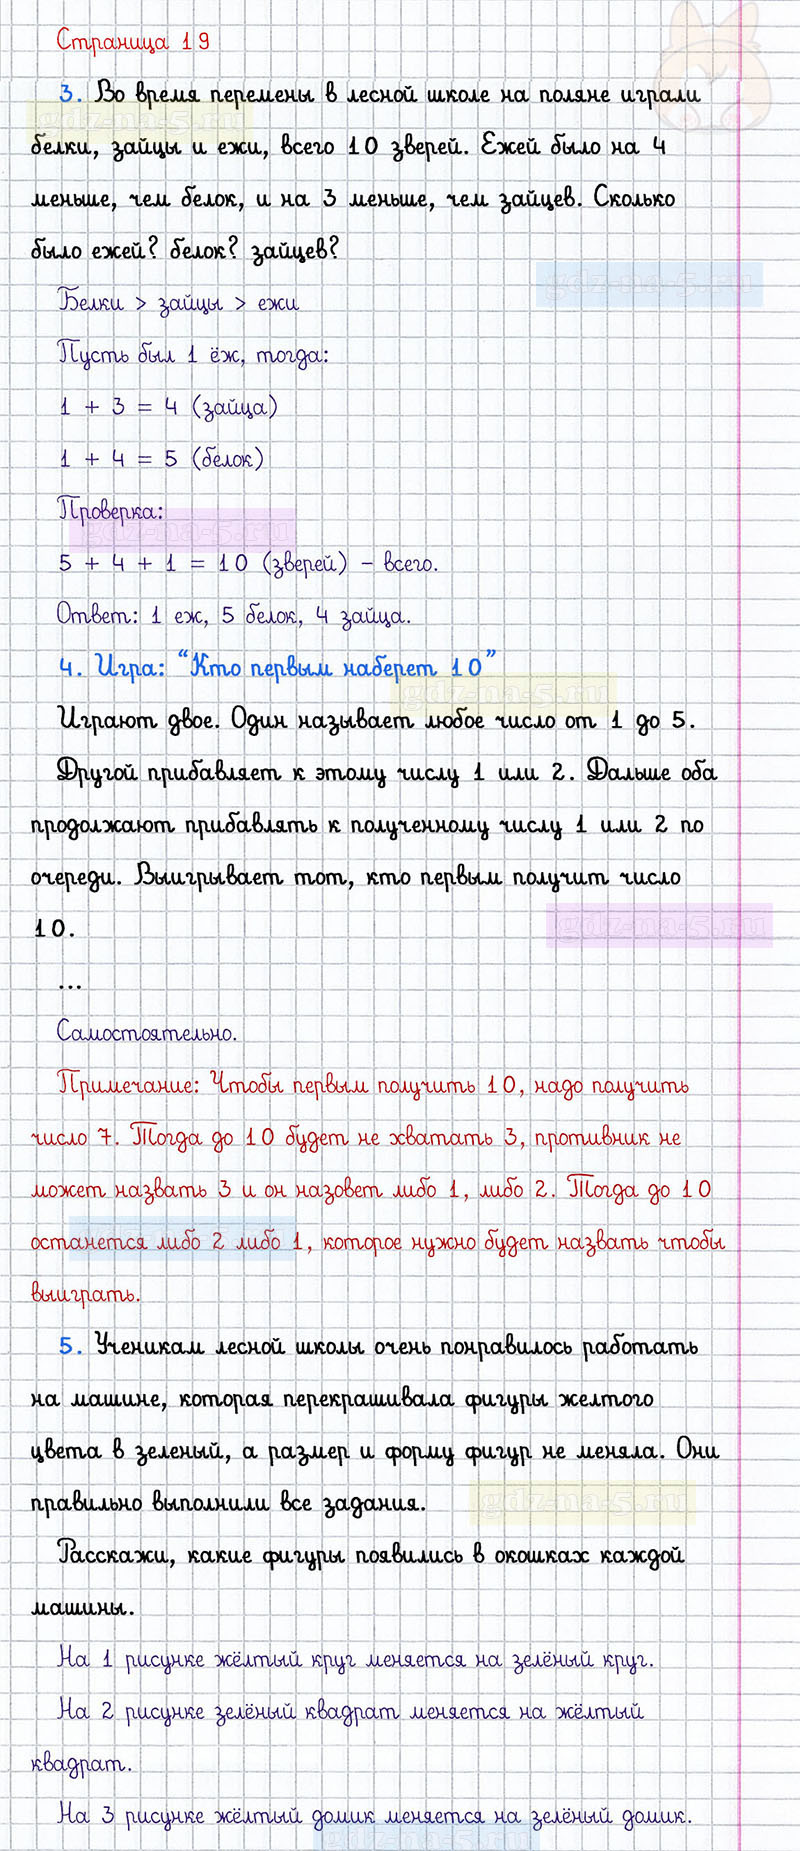 Страница 19
3. Во время перемены в лесной школе на поляне играли
белки, зайцы и ежи, всего 10 зверей. Ежей было на 4
меньше, чем белок, и на 3 меньше, чем зайцев. Сколько
было ежей? белок? зайцев?
gdz-na-5.ru
gdz-na-5.ru
Белки > зайцы > ежи
Пусть был 1 ёж, тогда:
1 + 3 = 4 (зайца)
1 + 4 = 5 (белок)
Проверка:
gdz-na-5.ru
5 + 4 + 1 = 10 (зверей) – всего.
Ответ: 1 еж, 5 белок, 4 зайца.
4. Игра: “Кто первым наберет 10”
gdz-na-5.ru
Играют двое. Один называет любое число от 1 до 5.
Другой прибавляет к этому числу 1 или 2. Дальше оба
продолжают прибавлять к полученному числу 1 или 2 по
очереди. Выигрывает тот, кто первым получит число
10.
gdz-na-5.ru
...
Самостоятельно.
Примечание: Чтобы первым получить 10, надо получить
число 7. Тогда до 10 будет не хватать 3, противник не
может назвать 3 и он назовет либо 1, либо 2. Тогда до 10
останется либо 2 либо 1, которое нужно будет назвать чтобы
gdz-na-5.ru
выиграть.
5. Ученикам лесной школы очень понравилось работать
на машине, которая перекрашивала фигуры желтого
цвета в зеленый, а размер и форму фигур не меняла. Они
правильно выполнили все задания.
gdz-na-5.ru
Расскажи, какие фигуры появились в окошках каждой
машины.
На 1 рисунке жёлтый круг меняется на зелёный круг.
На 2 рисунке зелёный квадрат меняется на жёлтый
квадрат.
На 3 рисунке жёлтый домик меняется на зелёный домик.
gdz-na-5.ru